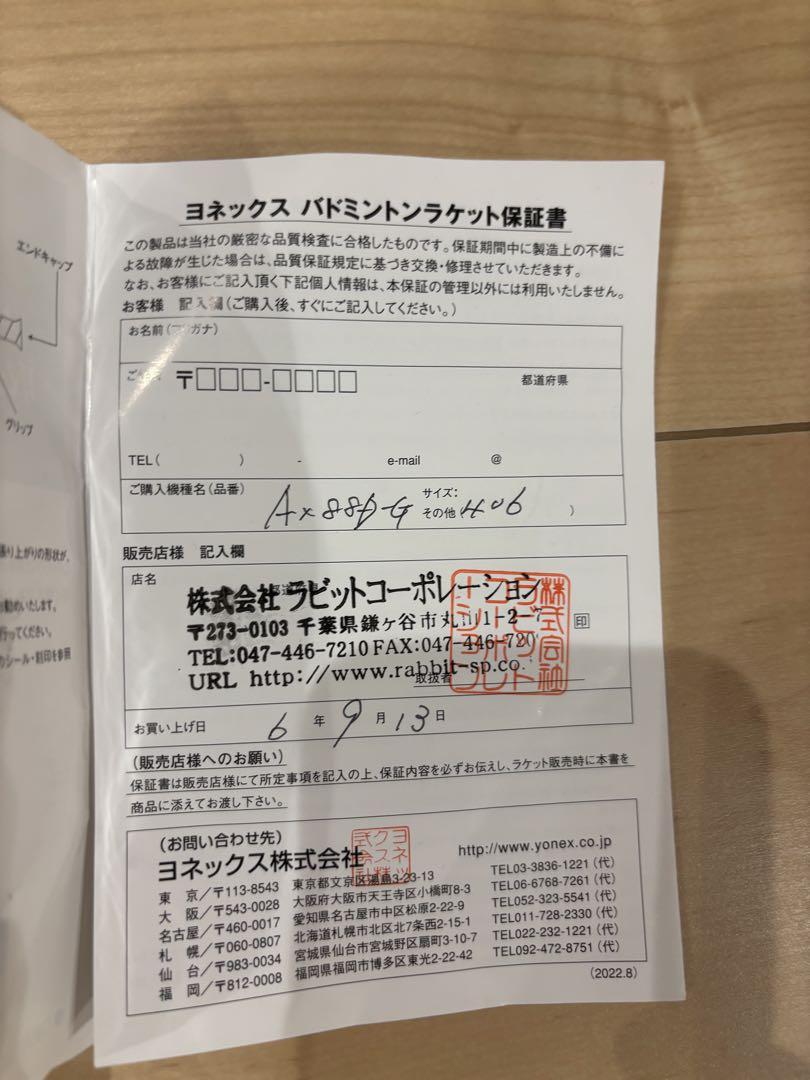 エンドキャップ
グリップ
張り上がりの形状が、
お勧めいたします。
行ってください。
シール・刻印を参照
ヨネックス バドミントンラケット保証書
この製品は当社の厳密な品質検査に合格したものです。保証期間中に製造上の不備に
よる故障が生じた場合は、品質保証規定に基づき交換・修理させていただきます。
なお、お客様にご記入頂く下記個人情報は、本保証の管理以外には利用いたしません。
お客様 記入欄(ご購入後、すぐにご記入してください。)
お名前(フリガナ)
〒□□□-□□□□ 都道府県
TEL( ) - e-mail @
ご購入機種名(品番) Ax88D-G サイズ: その他(406 )
販売店様 記入欄
店名
株式会社 ラビットコーポレーション
〒273-0103 千葉県鎌ヶ谷市丸山1-2-7 印
TEL:047-446-7210 FAX:047-446-720
URL http://www.rabbit-sp.co.
取扱者
お買い上げ日 6年 9月 13日
(販売店様へのお願い)
保証書は販売店様にて所定事項を記入の上、保証内容を必ずお伝えし、ラケット販売時に本書を
商品に添えてお渡し下さい。
(お問い合わせ先)
ヨネックス株式会社 http://www.yonex.co.jp
東 京/〒113-8543 東京都文京区湯島3-23-13 TEL03-3836-1221(代)
大 阪/〒543-0028 大阪府大阪市天王寺区小橋町8-3 TEL06-6768-7261(代)
名古屋/〒460-0017 愛知県名古屋市中区松原2-22-9 TEL052-323-5541(代)
札 幌/〒060-0807 北海道札幌市北区北7条西2-15-1 TEL011-728-2330(代)
仙 台/〒983-0034 宮城県仙台市宮城野区扇町3-10-7 TEL022-232-1221(代)
福 岡/〒812-0008 福岡県福岡市博多区東光2-22-42 TEL092-472-8751(代)
(2022.8)